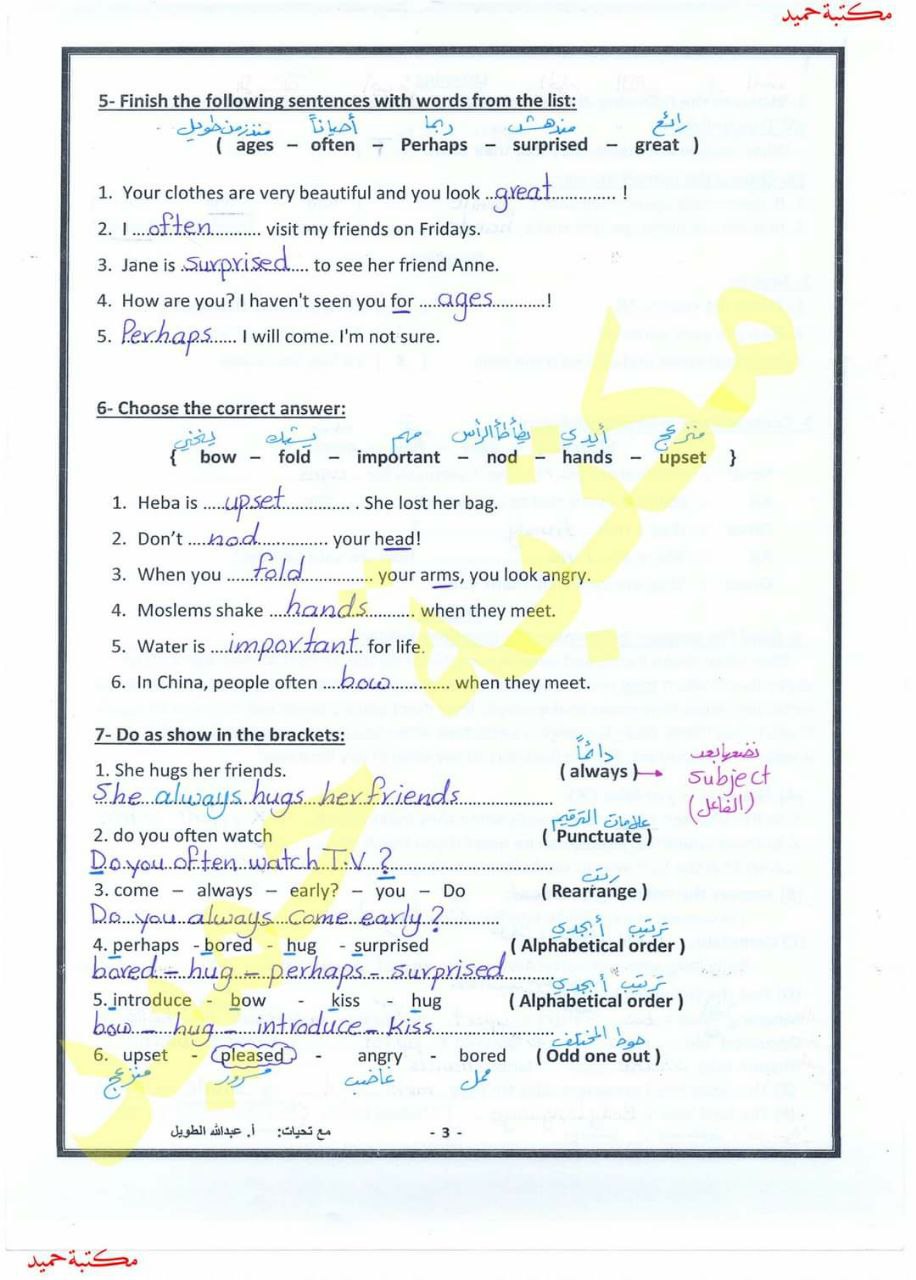 مكتبة حميد
5- Finish the following sentences with words from the list:
منذ زمن طويل أحياناً ربما مندهش رائع
( ages – often – Perhaps – surprised – great )
1. Your clothes are very beautiful and you look ..great.............. !
2. I ...often............ visit my friends on Fridays.
3. Jane is .surprised.... to see her friend Anne.
4. How are you? I haven't seen you for ....ages............!
5. .Perhaps...... I will come. I'm not sure.
6- Choose the correct answer:
ينحني يشبك مهم يطأطأ الرأس أيدي منزعج
{ bow – fold – important – nod – hands – upset }
1. Heba is .....upset................ . She lost her bag.
2. Don't ....nod................. your head!
3. When you ......fold................ your arms, you look angry.
4. Moslems shake ....hands........... when they meet.
5. Water is ....important.. for life.
6. In China, people often ....bow............... when they meet.
7- Do as show in the brackets:
دائماً
1. She hugs her friends. ( always )
نضعها بعد
subject
(الفاعل)
She always hugs her friends
علامات الترقيم
2. do you often watch ( Punctuate )
Do you often watch T.V. ?
رتب
3. come – always – early? – you – Do ( Rearrange )
Do you always come early ?
ترتيب أبجدي
4. perhaps - bored - hug - surprised ( Alphabetical order )
bored – hug – perhaps – surprised
ترتيب أبجدي
5. introduce - bow - kiss - hug ( Alphabetical order )
bow – hug – introduce – kiss
حوط المختلف
6. upset - pleased - angry - bored ( Odd one out )
منزعج مسرور غاضب ممل
مع تحيات: أ. عبدالله الطويل - 3 -
مكتبة حميد